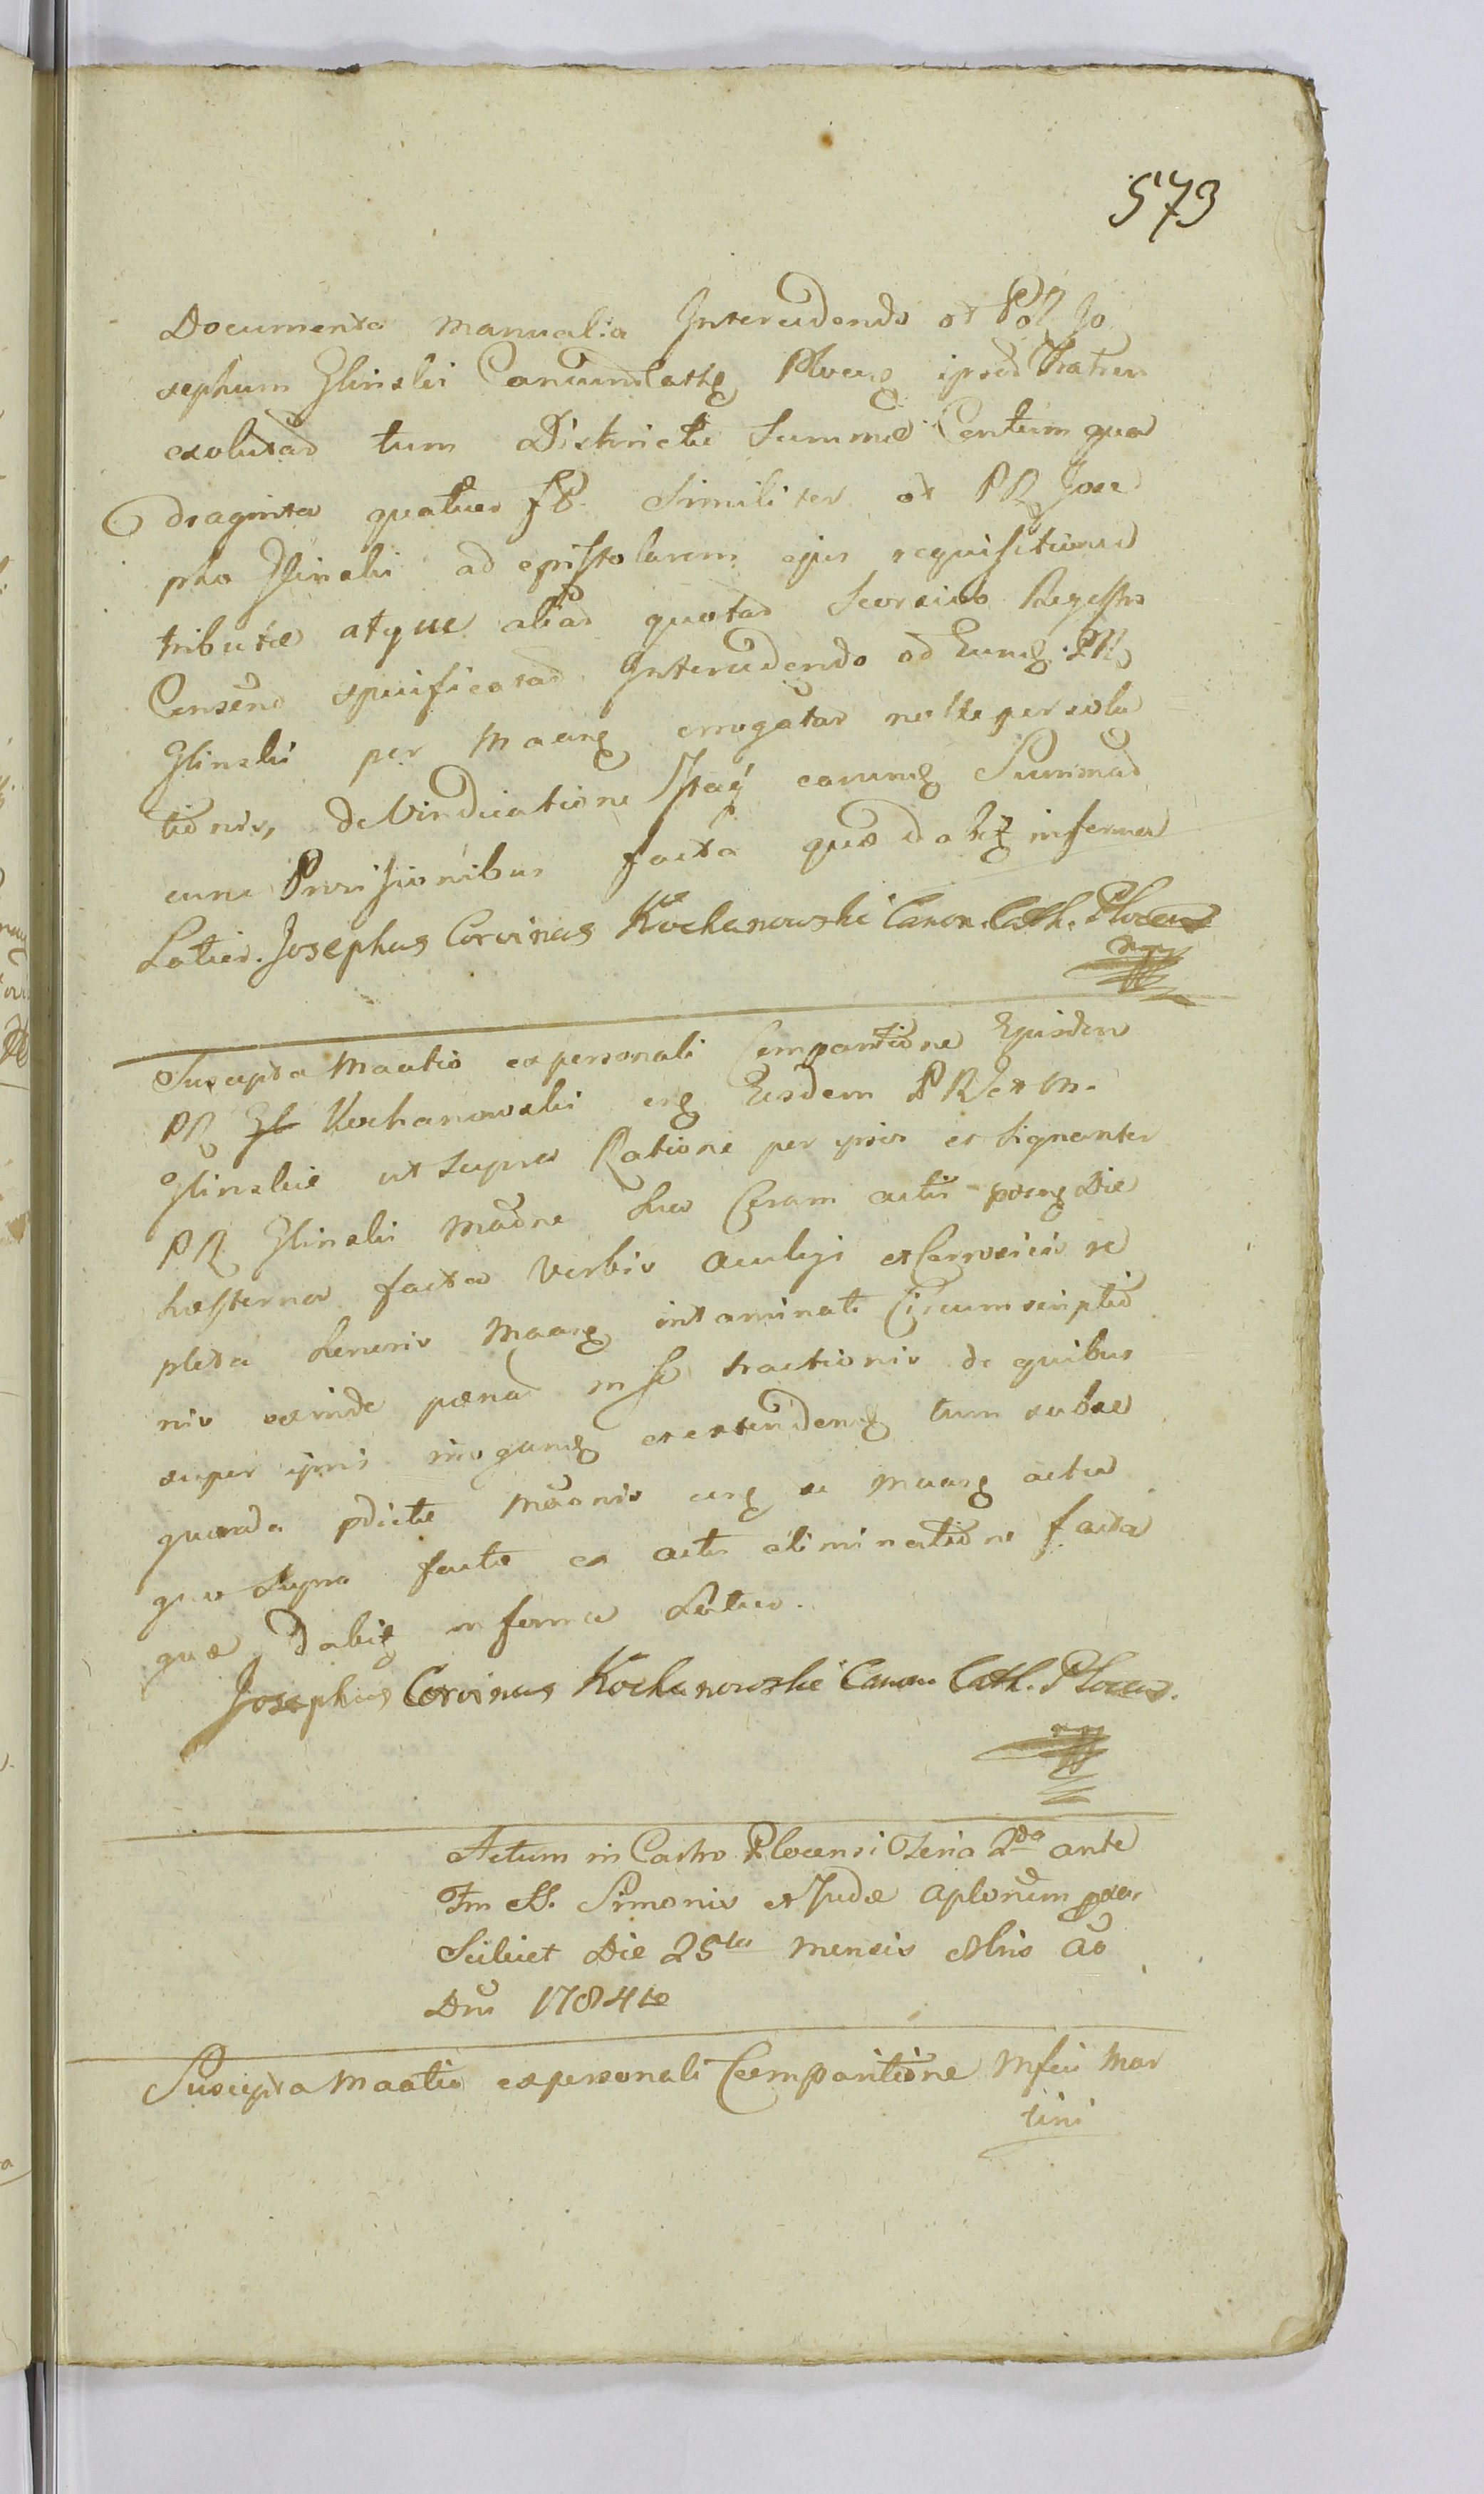 573
Documenta manualia Intercedendo et P R Jo
sephum Glinski Canum Cathq Plocensq ipsas Fratrem
exolutas tum Districte Summæ Centum qua
draginta quatuor fP. Similiter et PR Jose
pho Glinski ad epistolarem ejus requisitionem
tributæ atque alias quotas Seorsivo Regestro
Censend specificatas Intercedendo ad Eumq PR
Glinski per Maeng errogatas nec persolu
tionis, de Vindicatione Istaq earumq Summas
cum Provisionibus facta quæ dabitq in forma
Latior. Josephus Corvinus Kochanowski Canon. Cath. Plocens
mpp
Suscepta Maatio ex personali Comparitione Ejusdem
PR Gl Kochanowski erq Eosdem PR et M.
Glinskie ut supra Ratione per ipsos et signanter
PR Glinski Maõne hic Coram actis præsq Die
hesterna facta Verbis Aculeji et Corrosivis re
pleta honoris Maasq intaminati Circumscriptio
nis exinde pænas in se tractionis de quibus
super ipsis irrogandq et extendendq tum subse
quenda pdicte Maõnis erq se Maasq actu
quo supra factæ ex actis eliminatione facta
quæ dabitq in forma Latior.
Josephus Corvinus Kochanowski Canon Cath. Plocens.
mpp
Actum in Castro Plocensi Feria 2da ante
Fm SS. Simonis et Judæ Aplorum pxa
Scilicet Die 25ta mensis 8bris Aõ
Dni 1784to
Suscepta Maatio ex personali Comparitione Mfci Mar
tini